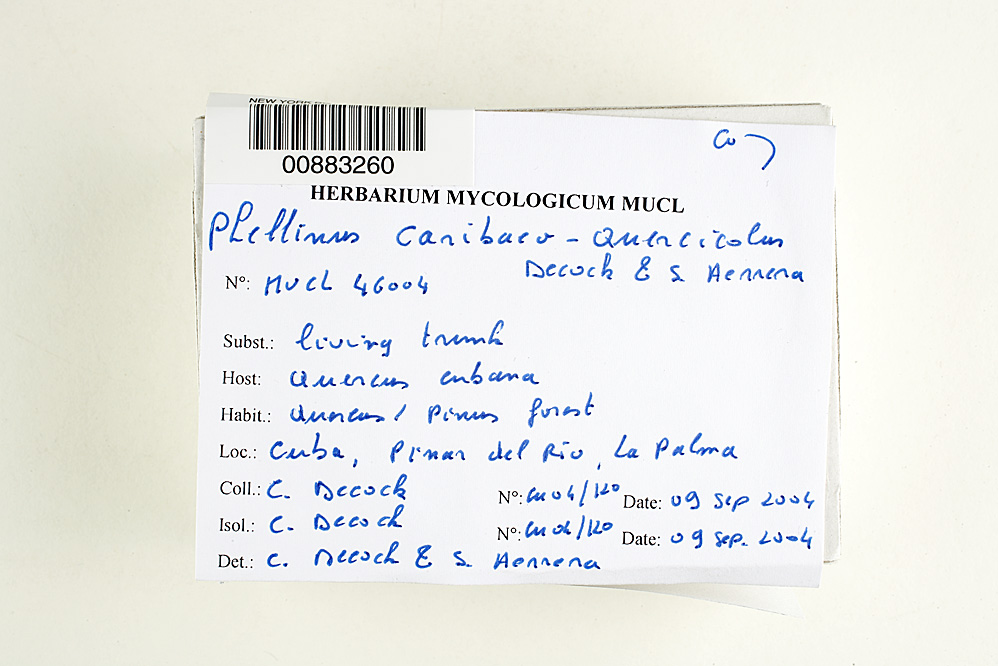 NEW YORK
00883260
Cu
HERBARIUM MYCOLOGICUM MUCL
Phellinus caribaeo - quercicolus
Decock & S. Herrera
N°: MUCL 46004
Subst.: living trunk
Host: Quercus cubana
Habit.: Quercus / Pinus forest
Loc.: Cuba, Pinar del Rio, La Palma
Coll.: C. Decock N°: CU04/120 Date: 09 Sep 2004
Isol.: C. Decock N°: CU04/120 Date: 09 Sep. 2004
Det.: C. Decock & S. Herrera